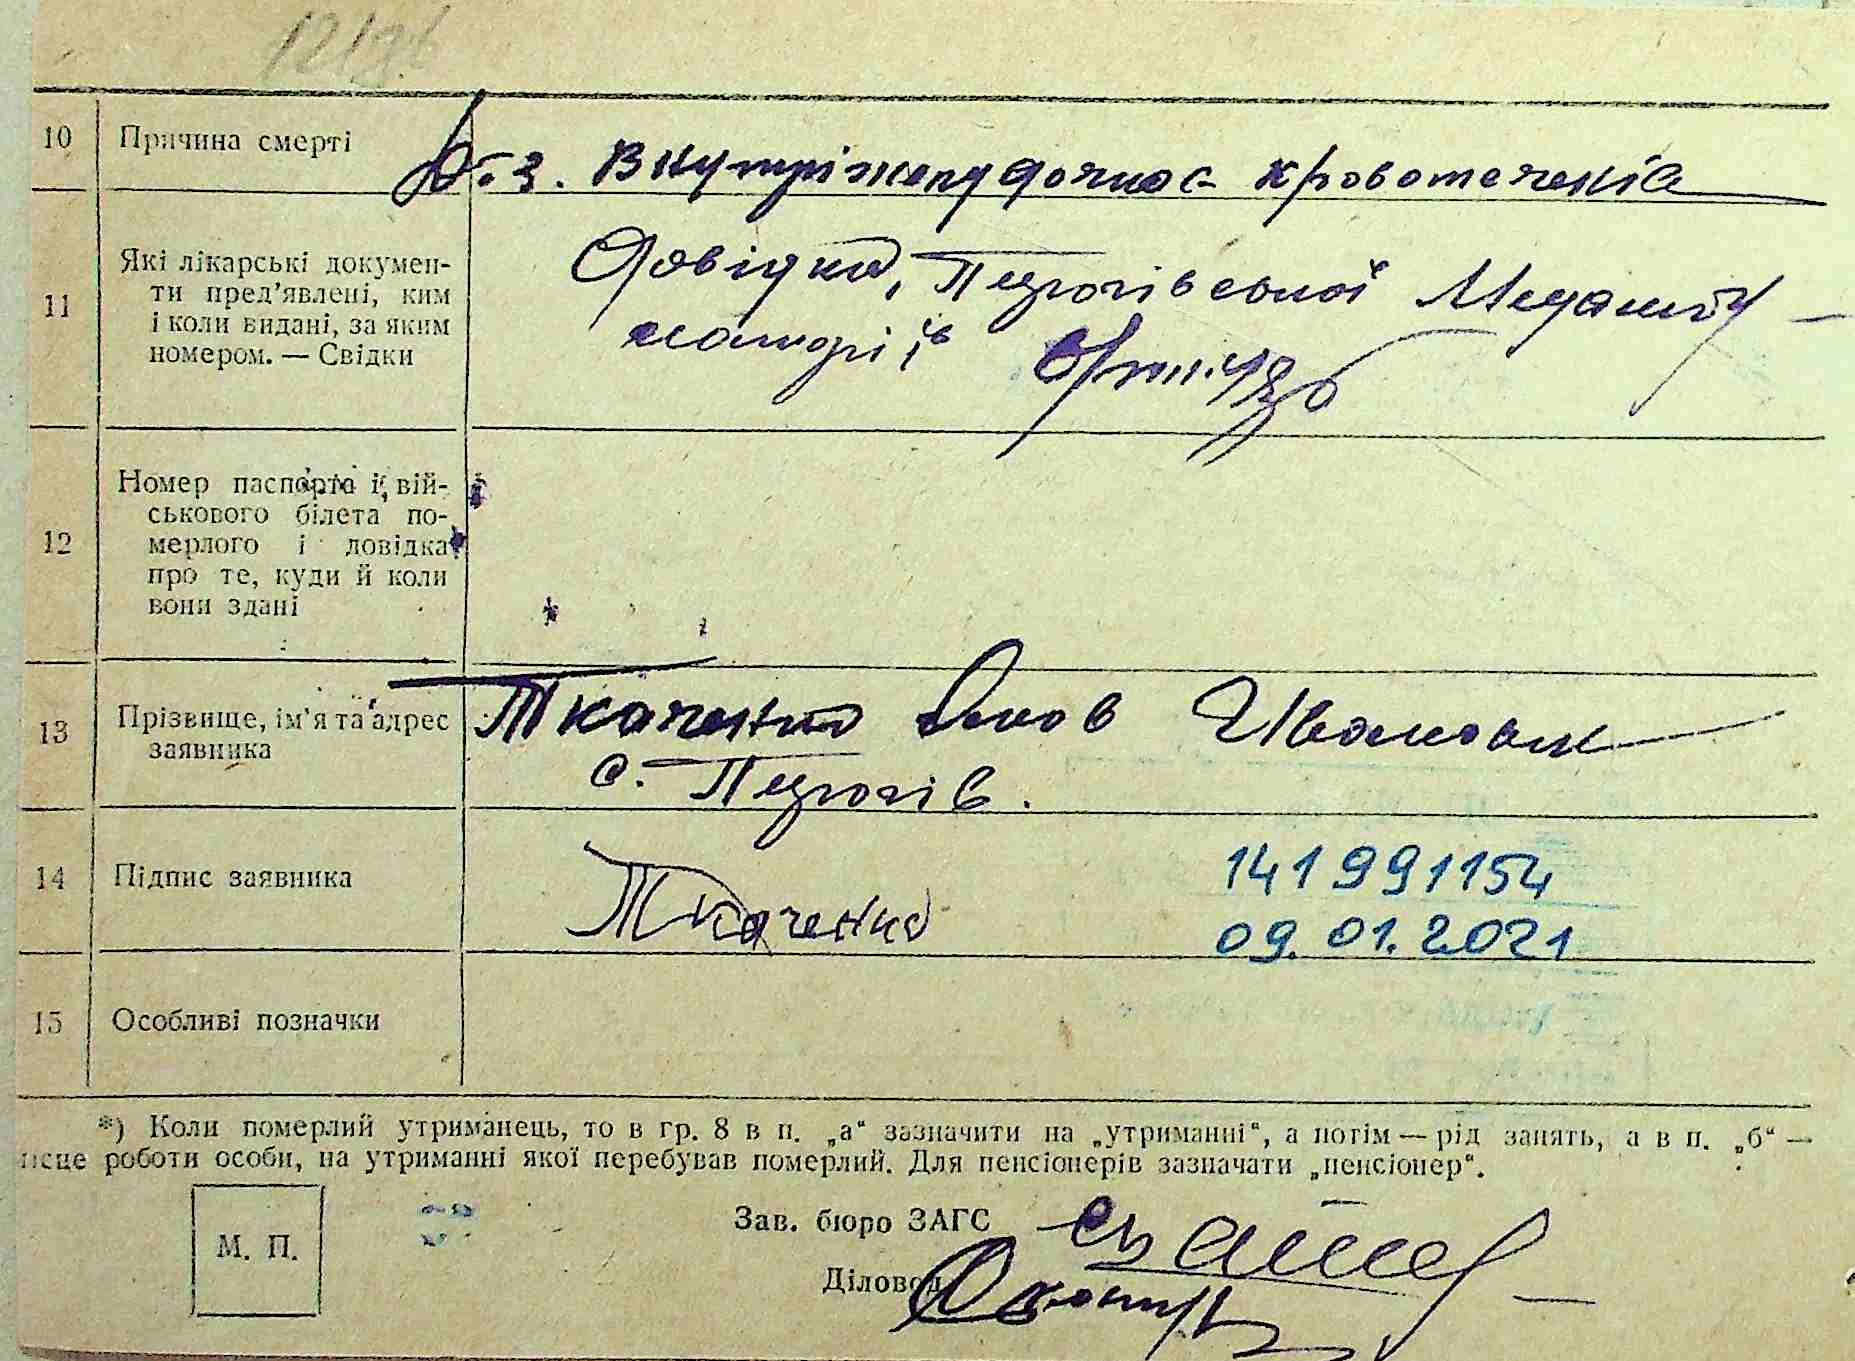 10 Причина смерті
Внутріжелудочное кровотеченіе
11 Які лікарські докумен-
ти пред'явлені, ким
і коли видані, за яким
номером. — Свідки
Довідка, Пирогівської
12 Номер паспорта і вій-
ськового білета по-
мерлого і довідка
про те, куди й коли
вони здані
13 Прізвище, ім'я та адрес
заявника
Ткаченко Яков Иванович
с. Пирогів.
14 Підпис заявника
Ткаченко
141991154
09.01.2021
15 Особливі позначки
*) Коли померлий утриманець, то в гр. 8 в п. „а“ зазначити на „утриманні“, а потім — рід занять, а в п. „б“ —
місце роботи особи, на утриманні якої перебував померлий. Для пенсіонерів зазначати „пенсіонер“.
М. П.
Зав. бюро ЗАГС
Діловод